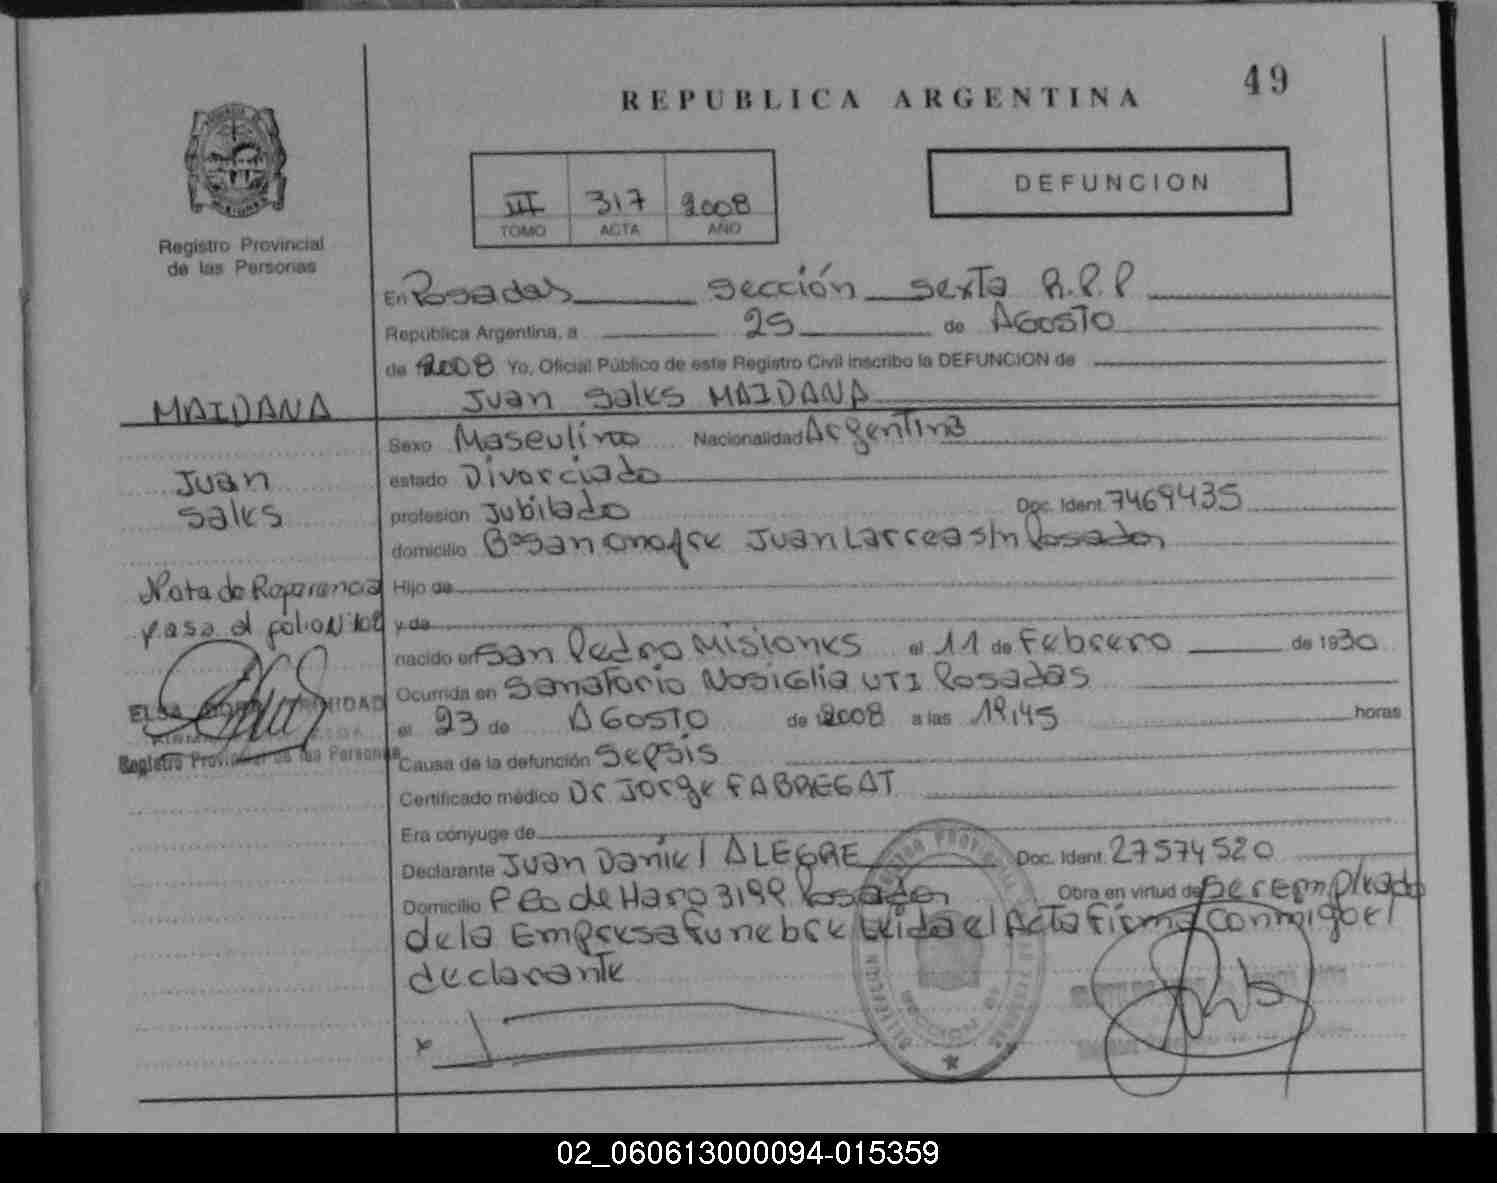 49
REPUBLICA ARGENTINA
DEFUNCION
III 317 2008
TOMO ACTA AÑO
Registro Provincial
de las Personas
En Posadas sección sexta R.P.P
República Argentina, a 25 de AGOSTO
de 2008 Yo, Oficial Público de este Registro Civil inscribo la DEFUNCION de
Juan Sales MAIDANA
MAIDANA
Juan
Sales
Nota de Referencia
pasa al folio Nº
Registro Provincial de las Personas
Sexo Masculino Nacionalidad Argentina
estado Divorciado
profesion Jubilado Doc. Ident. 7469435
domicilio Bº San Onofre Juan Larrea s/n Posadas
Hijo de
y de
nacido en San Pedro Misiones el 11 de Febrero de 1930
Ocurrida en Sanatorio Nosiglia UTI Posadas
el 23 de AGOSTO de 2008 a las 19,45 horas
Causa de la defunción Sepsis
Certificado médico Dr Jorge FABREGAT
Era cónyuge de
Declarante Juan Daniel ALEGRE Doc. Ident. 27574520
Domicilio de Haro Posadas Obra en virtud de Ser Empleado
de la Empresa funebre Leida el Acta firma conmigo el
declarante
x
SECCION
02_060613000094-015359